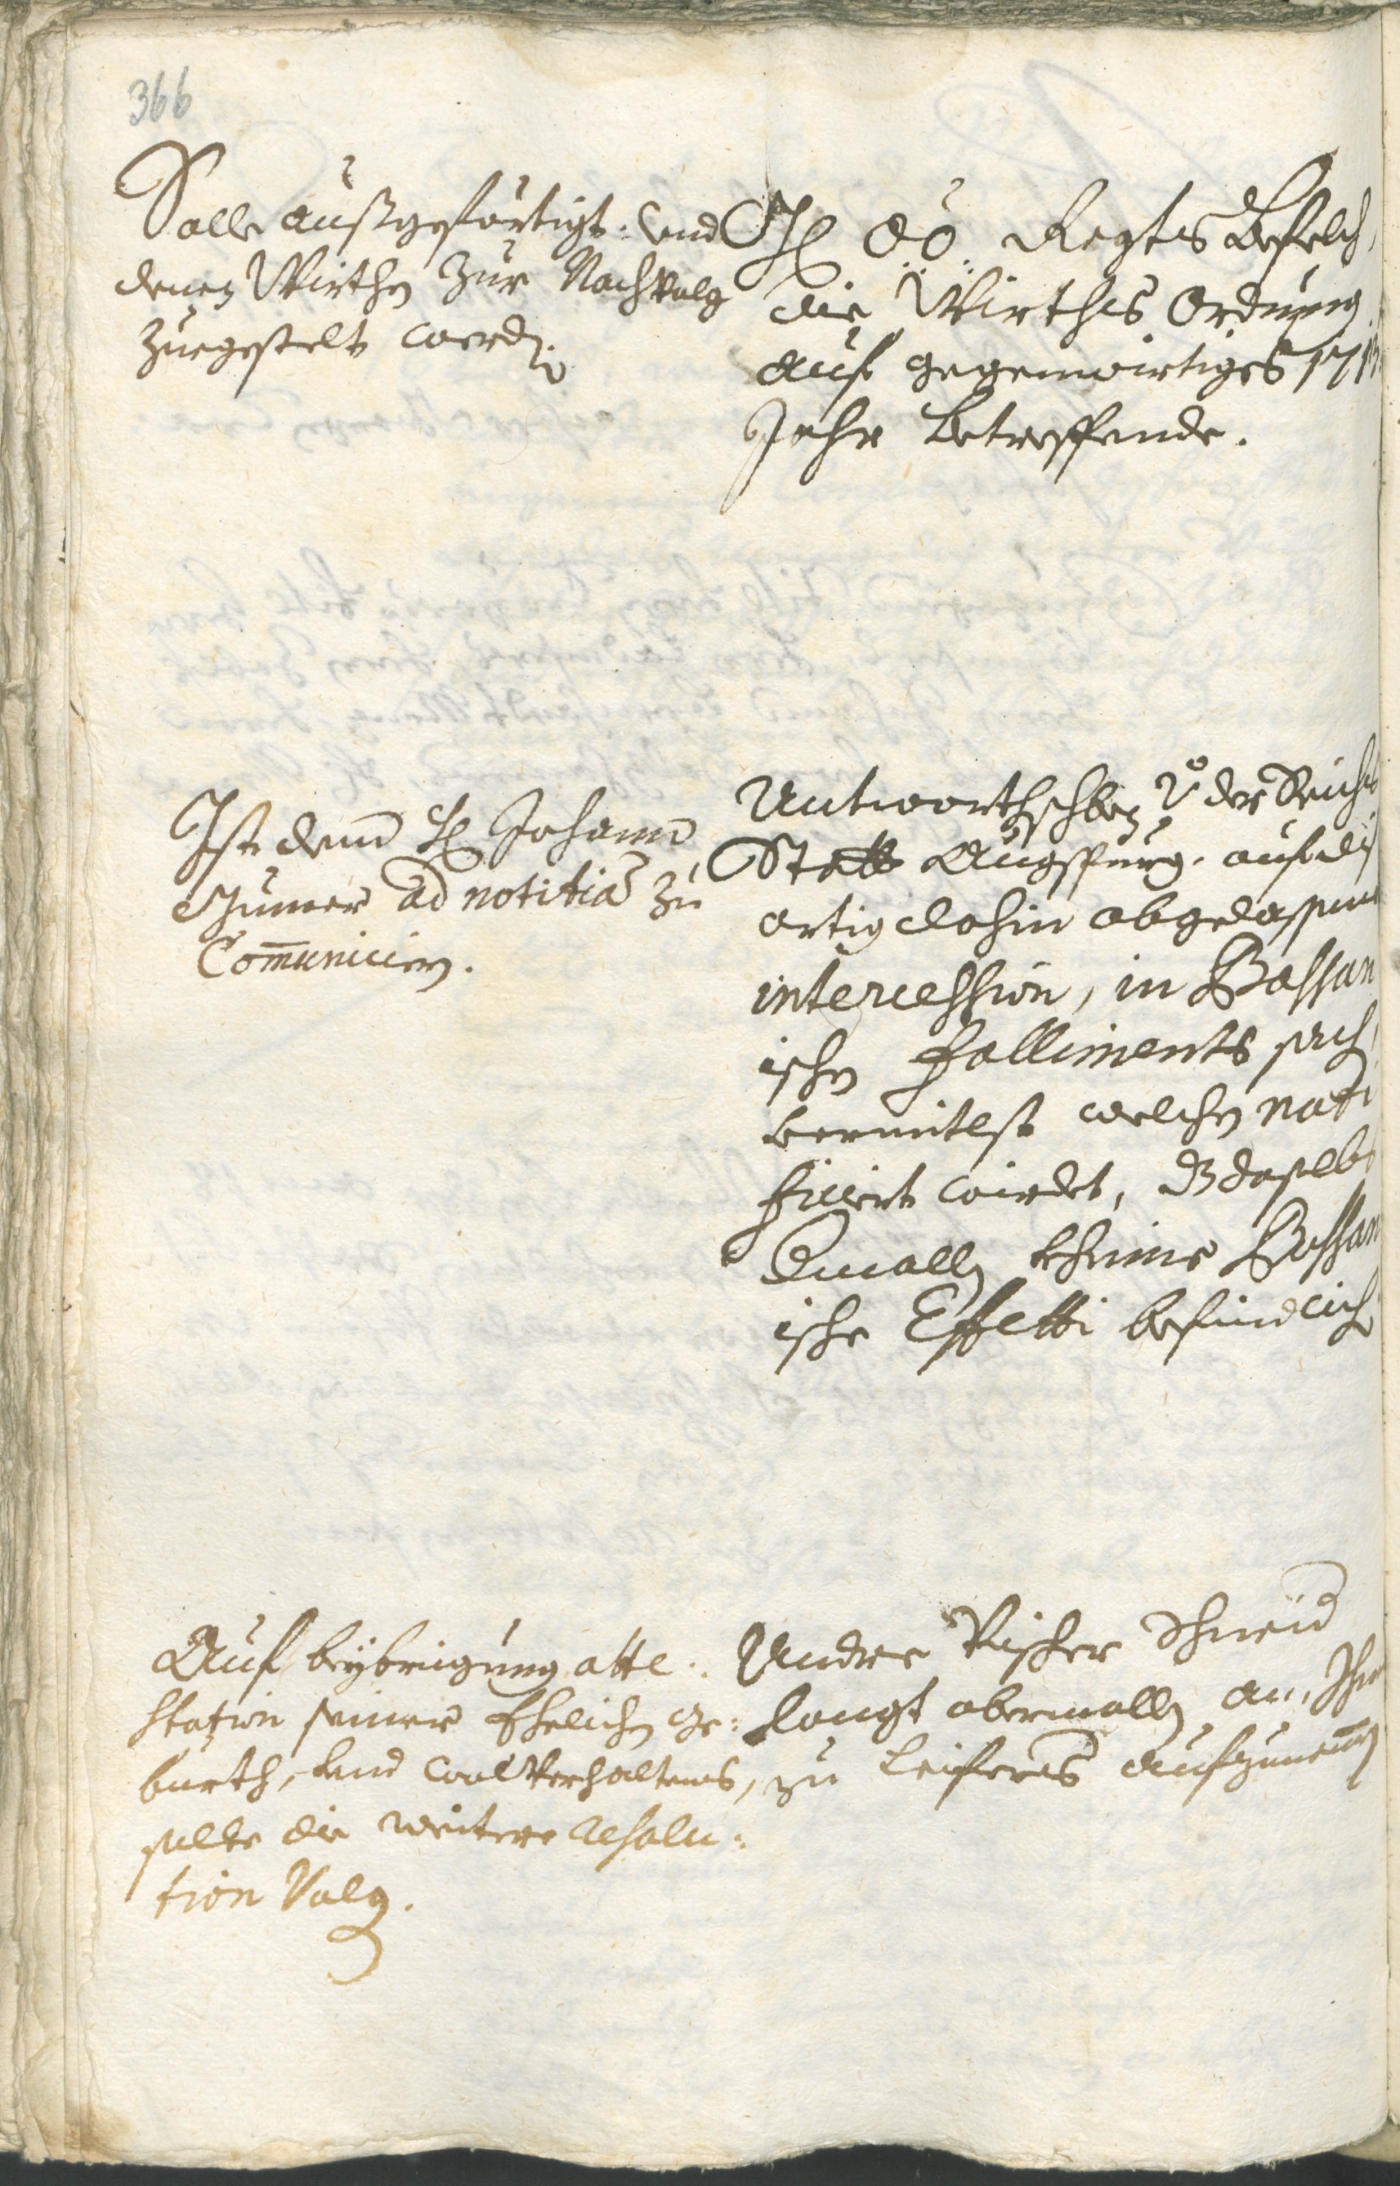 366
Solle außgeförtigt. und
denen Wirthen zur Nachvolg
zuegestelt werden.
OÖ Regts Befelch,
die Wirths Ordnung
auf gegenwirtiges
Jahr betreffende.
Ist dem H Johann
ad notitiam zu
Communiciern.
Antworthschben der Reichs
Statt Augspurg. auf dis
ortig dahin abgelassene
intercession, in Bassan
ischen falliments sach,
vermitlst welchen noti
ficiert wirdet, dz daselbs
dermallen kheine Bassan
ische Effetti befindlich
Auf beybringung atte
station seiner Ehelichen ge:
burth, und wolverhaltens,
solle die weitere resolu:
tion volgen.
Andre Vischer Schneid
langt abermallen an, Ihne
zu Leifers aufzunemen